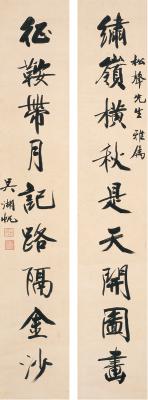 繡嶺橫秋是天開圖畫
松椿先生雅屬
征鞍帶月記路隔金沙
吳湖帆